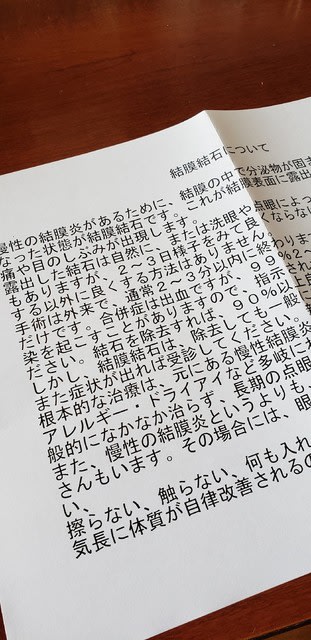 結膜結石について
慢性の結膜炎があるために、結膜の中で分泌物が固ま
なった状態が結膜結石です。これが結膜表面に露出
痛や目のしぶみが出現します。
露出した結石は自然に、または洗眼や点眼によっ
もありますが、２～３日様子をみて良くならない
する以外に良くする方法はありません。
手術は外来で、通常２～３分以内に終わりま
だけです。合併症は出血ですが、９９％２～
染を起こすことがありますので、指示
ださい。結石を除去すれば、９０％以上良
しかし、結膜結石は、除去しても一般
また症状が出れば受診してください。
根本的な治療は、元にある慢性結膜炎
アレルギー・ドライアイなど多岐にわ
般的になかなか治らず、長期の点眼
また、慢性の結膜炎というよりも、
さんもいます。その場合には、眼
い、
擦らない、触らない、何も入れ
気長に体質が自律改善されるの